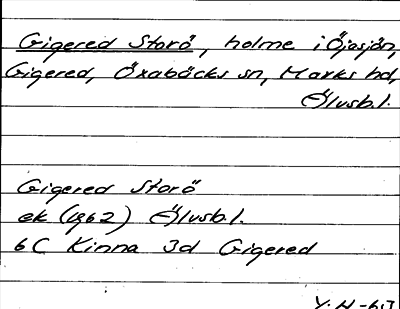 Gigered Storö, holme i Öjasjön,
Gigered, Öxabäcks sn, Marks hd,
Älvsb.l.
Gigered Storö
ek (1962) Älvsb.l.
6C Kinna 3d Gigered